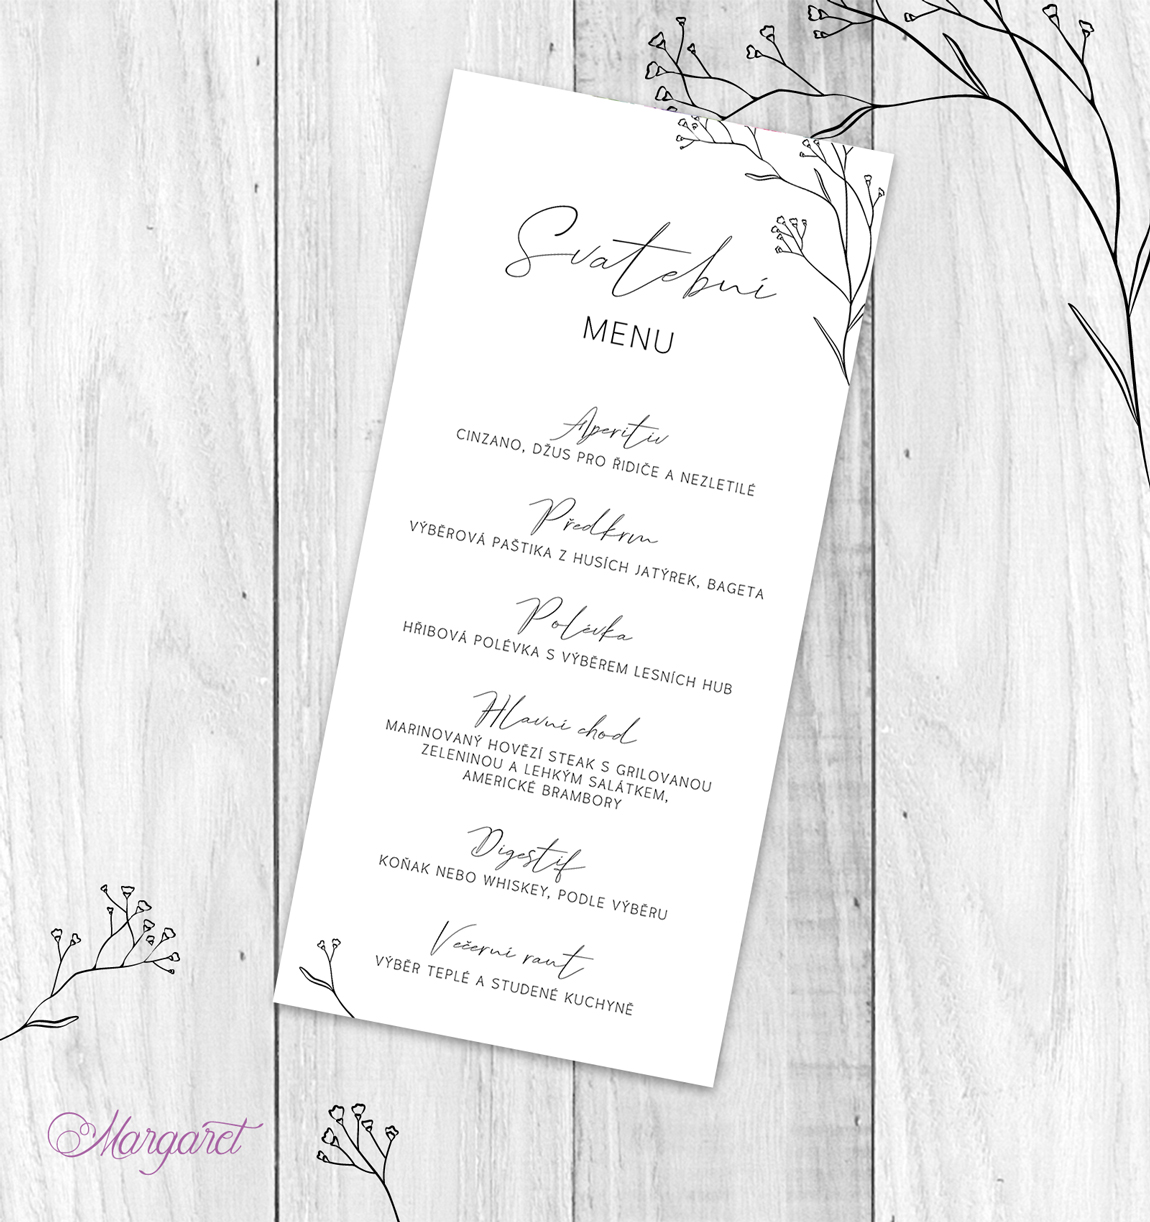 Svatební
MENU
Aperitiv
CINZANO, DŽUS PRO ŘIDIČE A NEZLETILÉ
Předkrm
VÝBĚROVÁ PAŠTIKA Z HUSÍCH JATÝREK, BAGETA
Polévka
HŘIBOVÁ POLÉVKA S VÝBĚREM LESNÍCH HUB
Hlavní chod
MARINOVANÝ HOVĚZÍ STEAK S GRILOVANOU
ZELENINOU A LEHKÝM SALÁTKEM,
AMERICKÉ BRAMBORY
Digestif
KOŇAK NEBO WHISKEY, PODLE VÝBĚRU
Večerní raut
VÝBĚR TEPLÉ A STUDENÉ KUCHYNĚ
Margaret